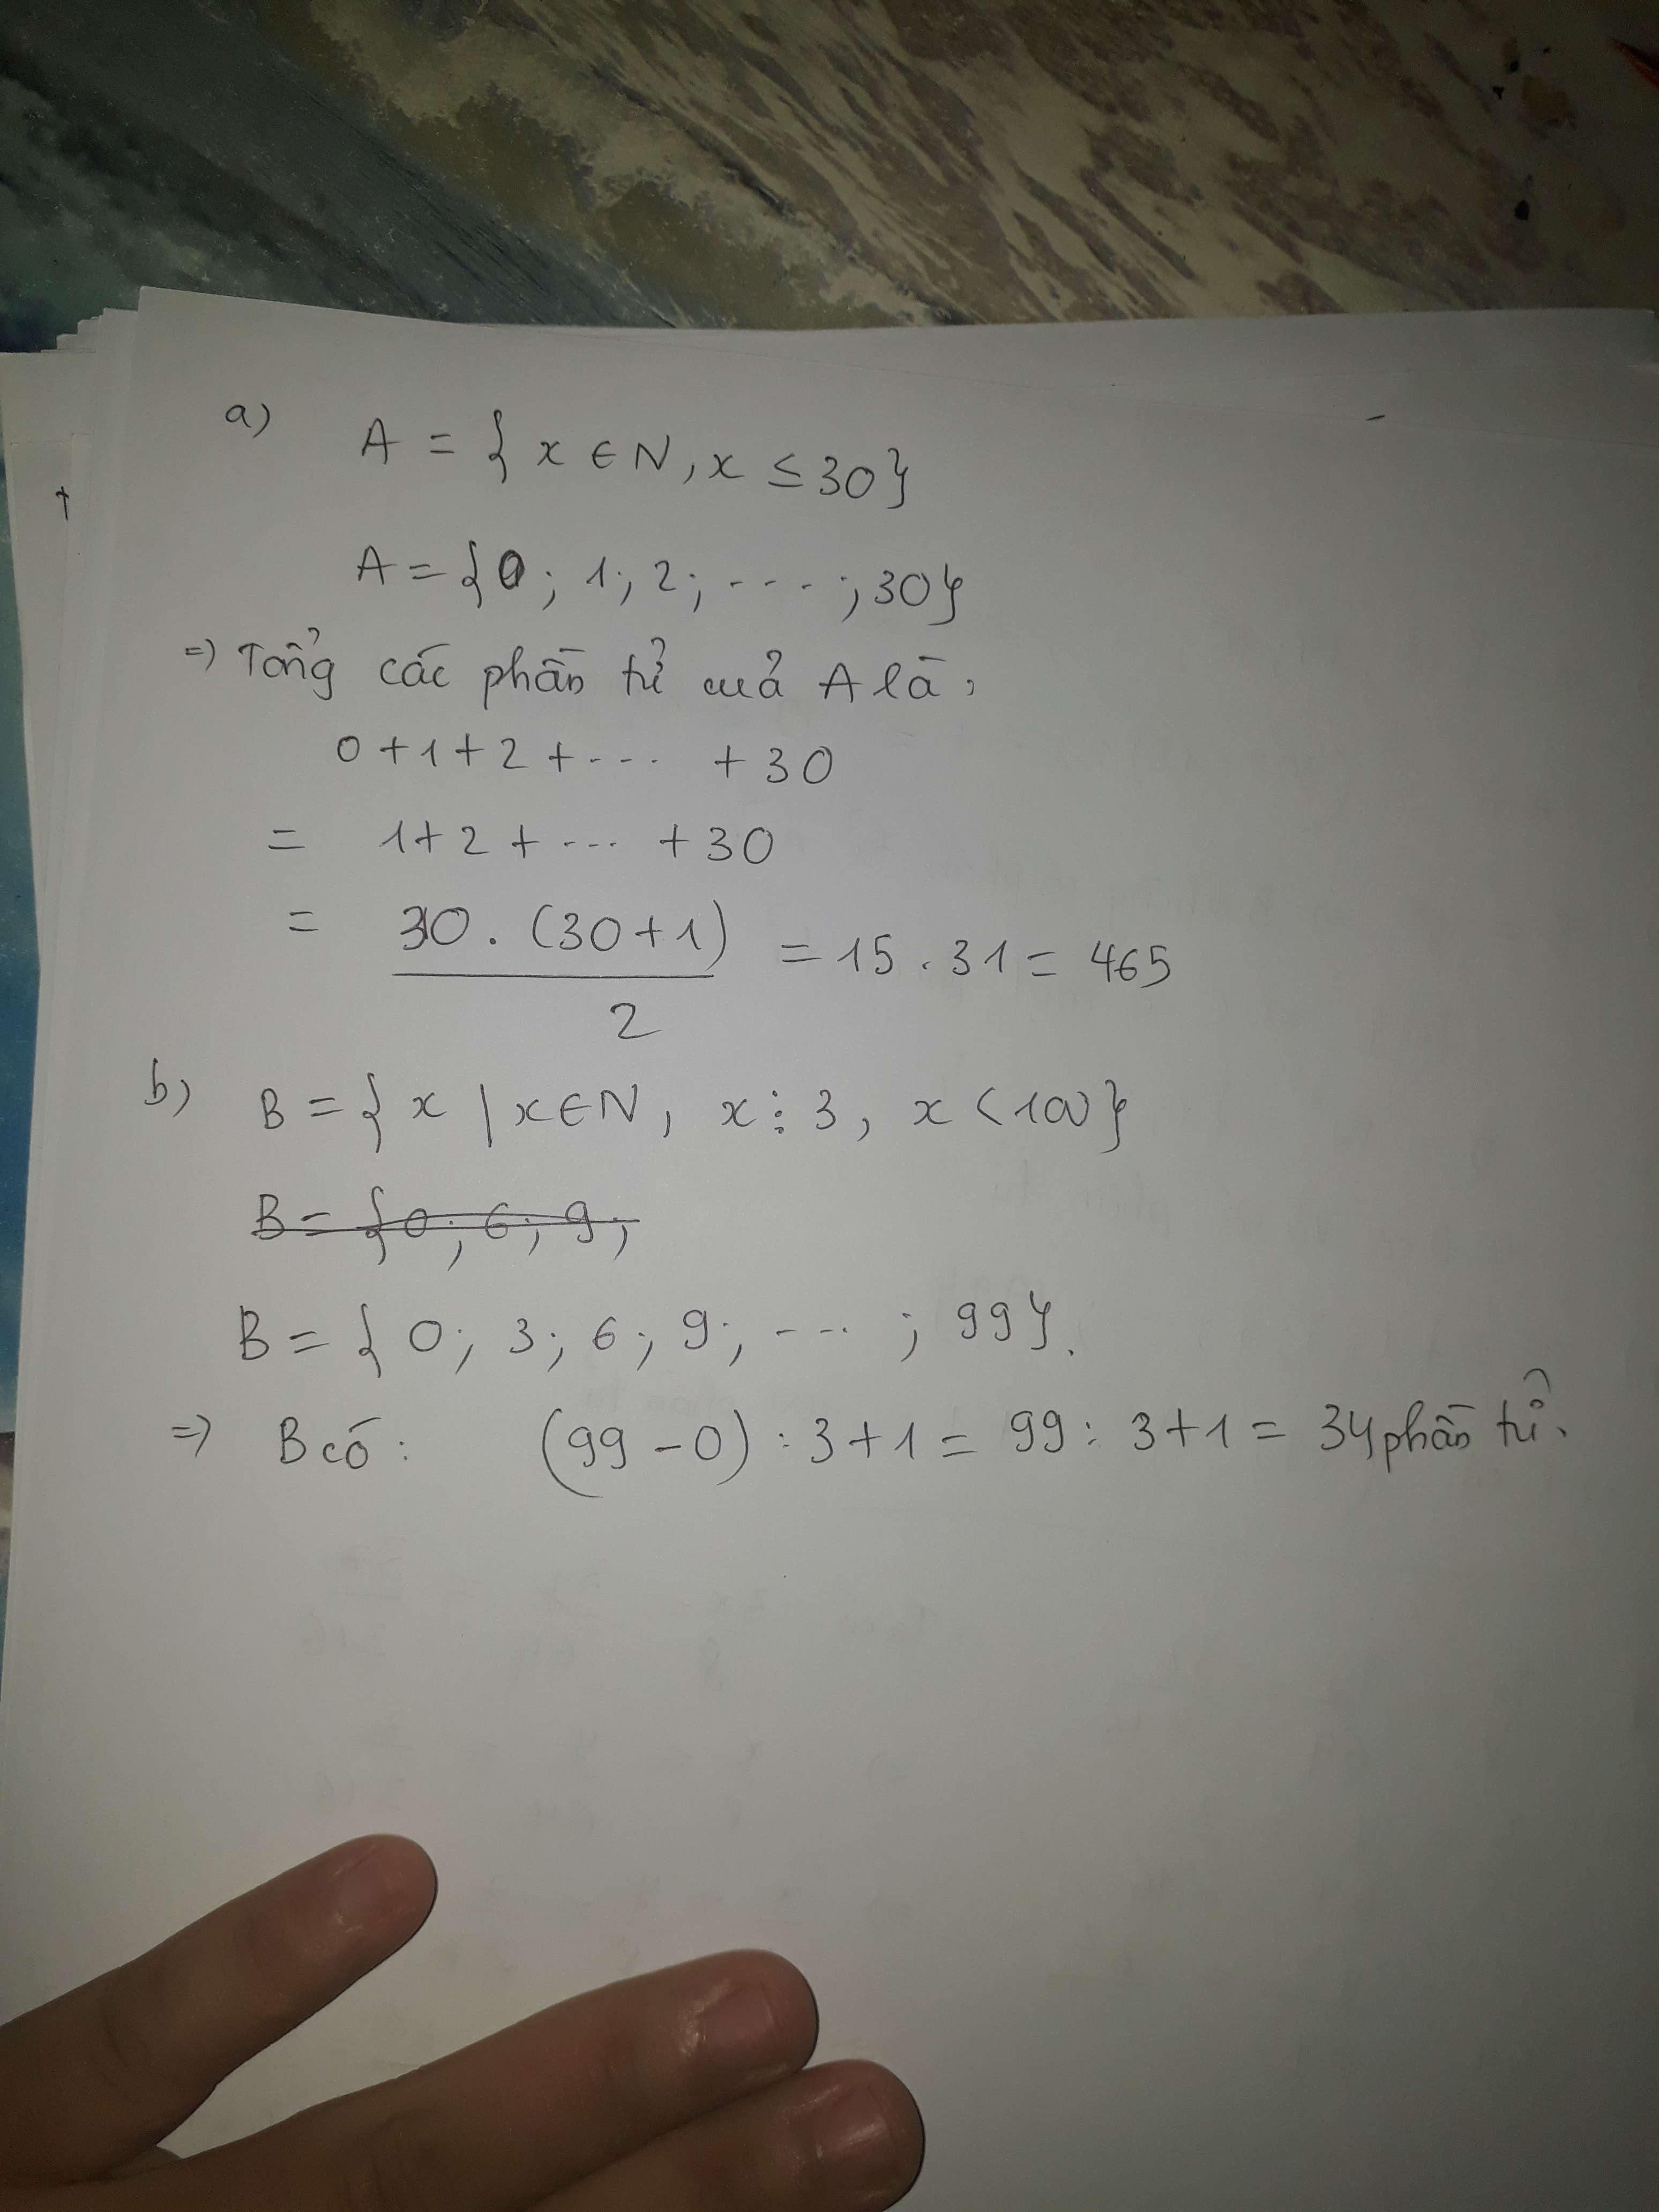 a) A = { x ∈ N, x ≤ 30}
A = {0; 1; 2; ....; 30}
=) Tổng các phần tử cuả A là,
0 + 1 + 2 + ... + 30
= 1 + 2 + ... + 30
= 30 . (30+1) / 2 = 15 . 31 = 465
b) B = { x | x ∈ N, x ⋮ 3, x < 100}
B = {0; 6; 9;
B = { 0; 3; 6; 9; ....; 99}.
=) B có: (99 - 0) : 3 + 1 = 99 : 3 + 1 = 34 phần tử.